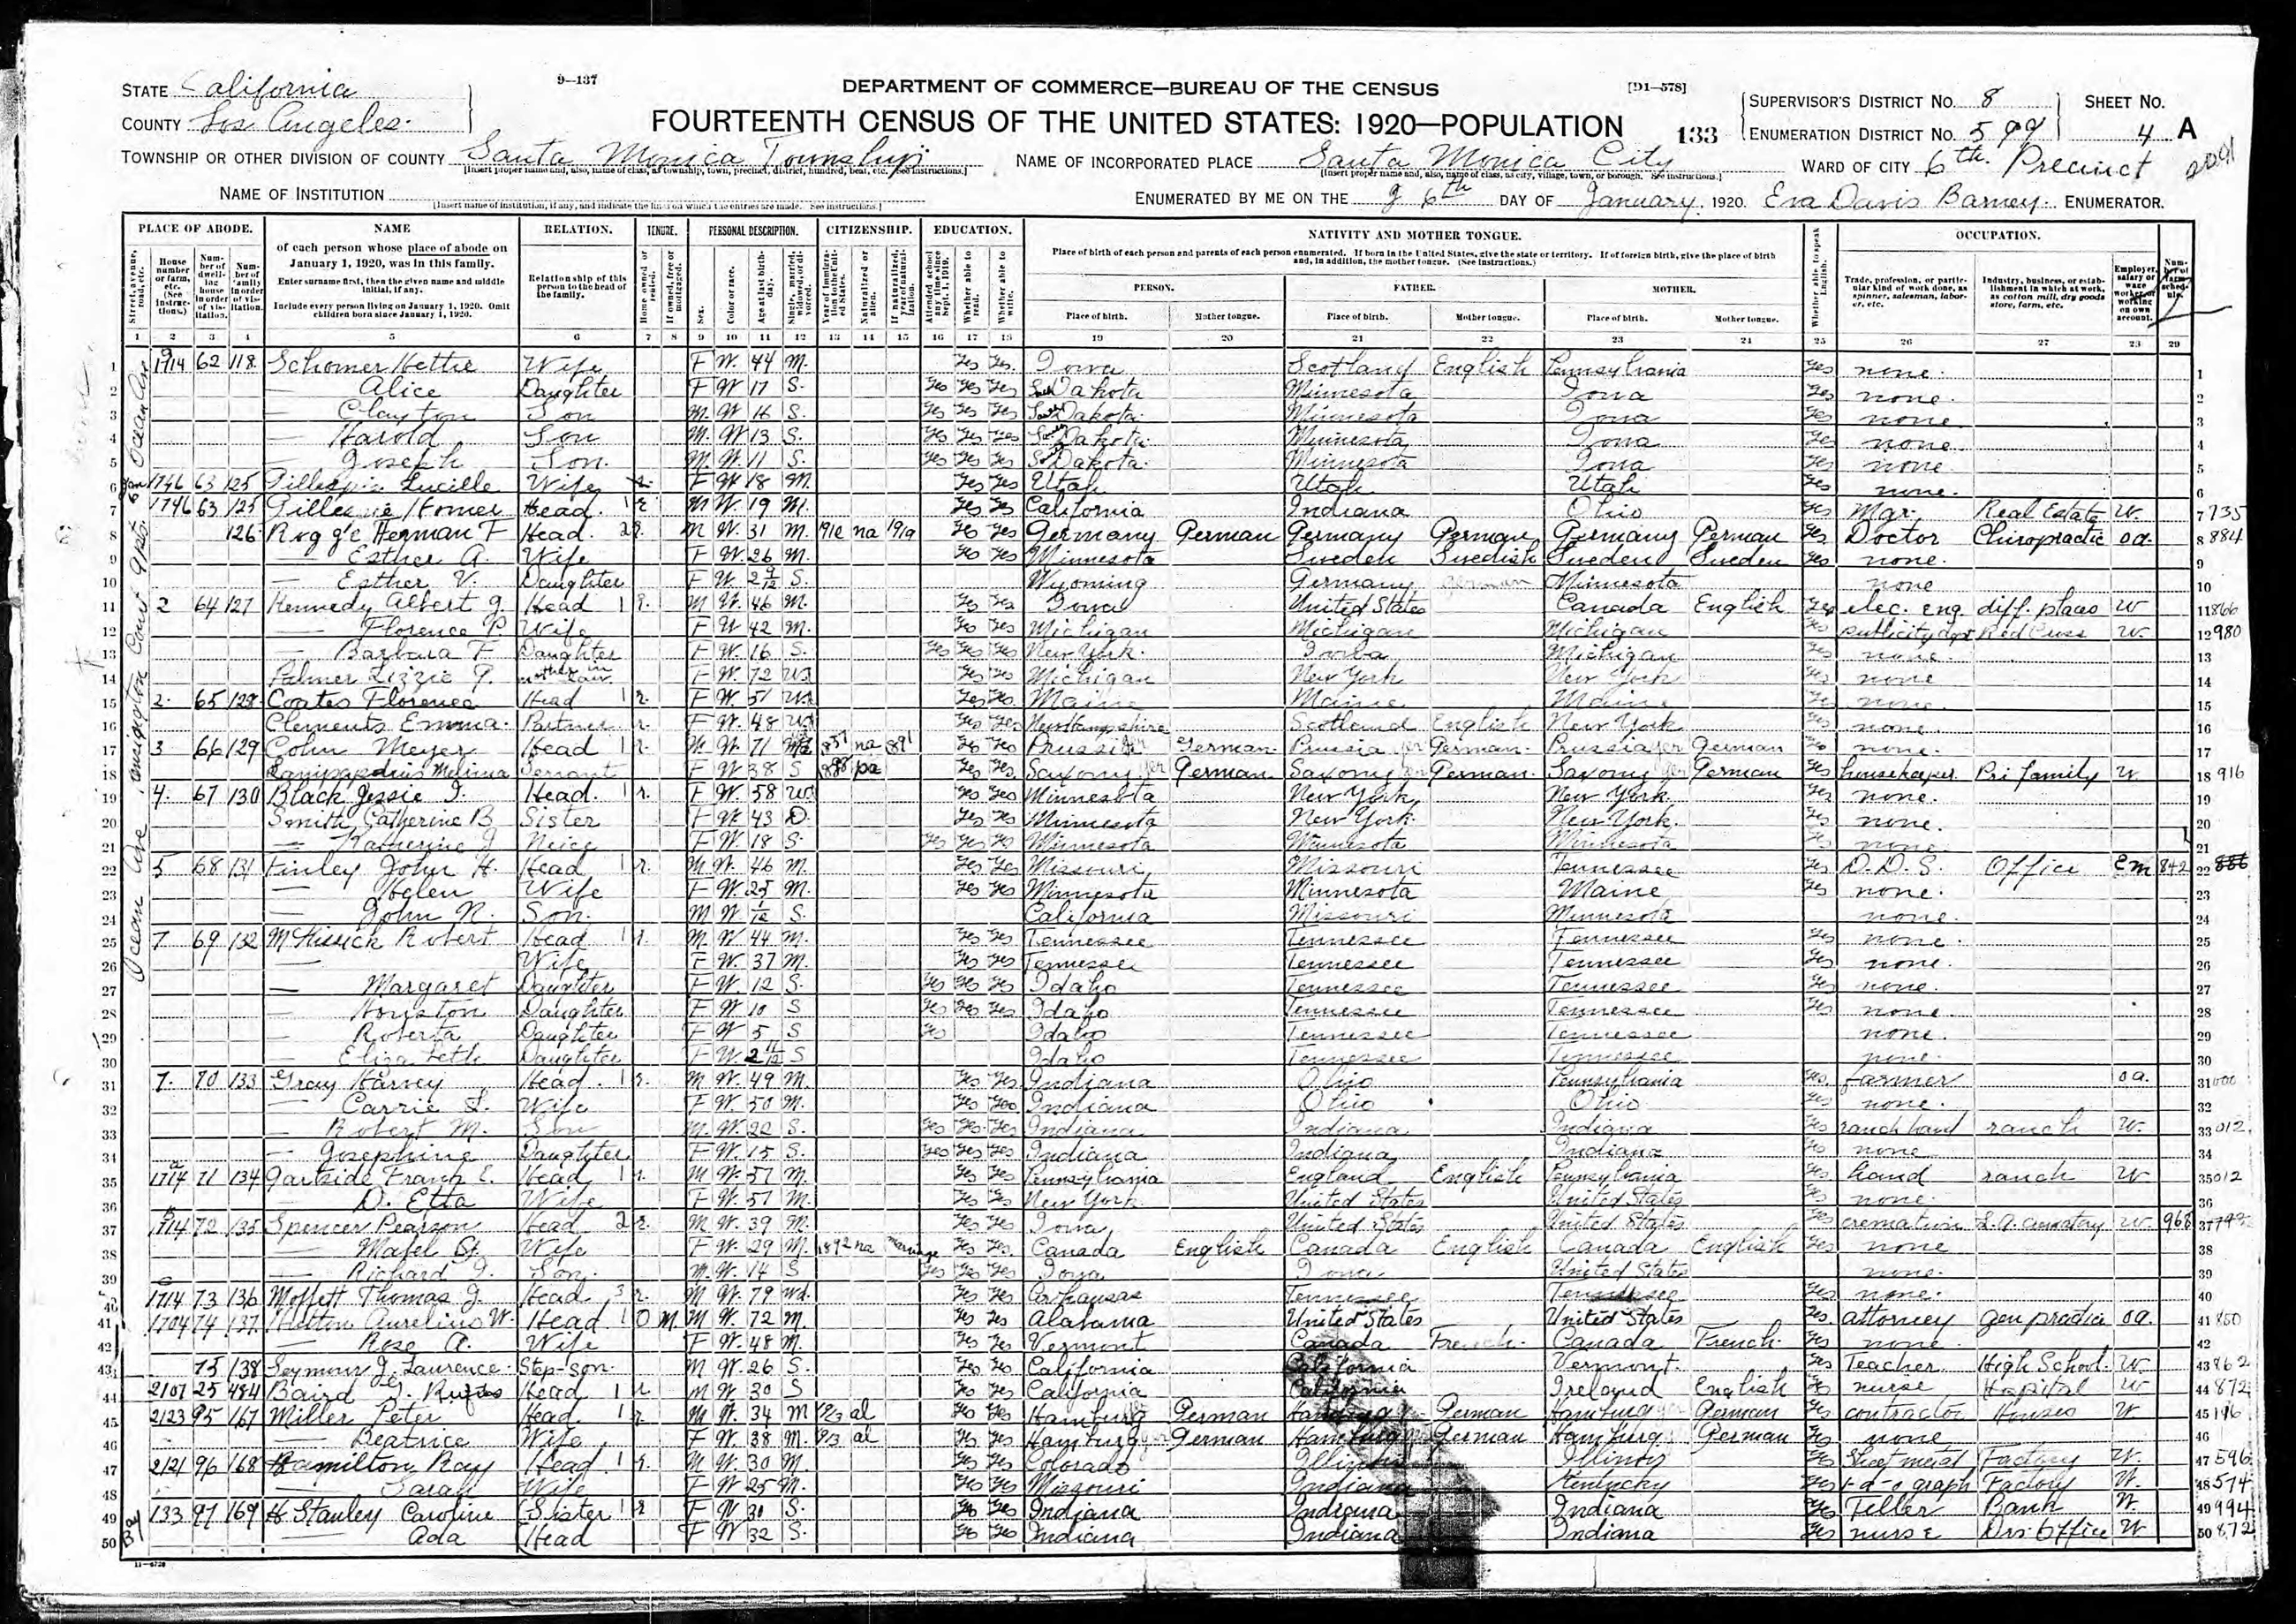 9—137
DEPARTMENT OF COMMERCE—BUREAU OF THE CENSUS
[D1-578]
STATE California
COUNTY Los Angeles.
FOURTEENTH CENSUS OF THE UNITED STATES: 1920—POPULATION
133
SUPERVISOR'S DISTRICT No. 8
ENUMERATION DISTRICT No.
SHEET No. 4 A
TOWNSHIP OR OTHER DIVISION OF COUNTY Santa Monica Township
NAME OF INCORPORATED PLACE Santa Monica City
WARD OF CITY 6th. Precinct
NAME OF INSTITUTION
ENUMERATED BY ME ON THE 6th DAY OF January, 1920. Eva Davis Barney. ENUMERATOR.
PLACE OF ABODE. NAME RELATION. TENURE. PERSONAL DESCRIPTION. CITIZENSHIP. EDUCATION. NATIVITY AND MOTHER TONGUE. OCCUPATION.
of each person whose place of abode on January 1, 1920, was in this family.
Enter surname first, then the given name and middle initial, if any.
Include every person living on January 1, 1920. Omit children born since January 1, 1920.
Relationship of this person to the head of the family.
Place of birth of each person and parents of each person enumerated. If born in the United States, give the state or territory. If of foreign birth, give the place of birth and, in addition, the mother tongue. (See instructions.)
PERSON. FATHER. MOTHER.
Place of birth. Mother tongue. Place of birth. Mother tongue. Place of birth. Mother tongue.
1 2 3 4 5 6 7 8 9 10 11 12 13 14 15 16 17 18 19 20 21 22 23 24 25 26 27 28 29
1 1714 62 118 Schomer Hettie Wife F W. 44 M. Yes Yes. Iowa Scotland English Pennsylvania Yes none. 1
2 — Alice Daughter F W 17 S. Yes Yes Yes Dakota Minnesota Iowa Yes none. 2
3 — Clayton Son M. W 16 S. Yes Yes Yes Dakota Minnesota Iowa Yes none 3
4 — Harold Son M. W 13 S. Yes Yes Yes Dakota Minnesota Iowa Yes none 4
5 — Joseph Son. M W. 11 S. Yes Yes Yes Dakota Minnesota Iowa Yes none 5
6 1746 63 125 Lucille Wife F W 18 M. Yes Yes Utah Utah Utah Yes none. 6
7 1746 63 125 Homer Head. 1 r M W. 19 M. Yes Yes California Indiana Ohio Yes Mgr. Real Estate W. 7 735
8 126 Herman F Head. 2 r. M W. 31 M. 1910 na 1919 Yes Yes Germany German Germany German Germany German Yes Doctor Chiropractic oa. 8 884
9 — Esther A. Wife F W. 26 M. Yes Yes Minnesota Sweden Swedish Sweden Sweden Yes none. 9
10 — Esther V. Daughter F W. 2 9/12 S. Wyoming Germany German Minnesota none 10
11 2 64 127 Kennedy Albert J. Head 1 r. M W. 46 M. Yes Yes Iowa United States Canada English Yes elec. eng. diff. places W 11 866
12 — Florence P. Wife F W 42 M. Yes Yes Michigan Michigan Michigan Yes publicity dept Red Cross W. 12 980
13 — Barbara F. Daughter F W. 16 S. Yes Yes Yes New York. Iowa Michigan Yes none. 13
14 Palmer Lizzie P. mother in Law F W. 72 Wd Yes Yes Michigan New York New York Yes none 14
15 2. 65 128 Coates Florence Head 1 r. F W. 51 Wd. Yes Yes. Maine Maine Maine Yes none. 15
16 Clements Emma. Partner r. F W. 48 Wd Yes Yes New Hampshire Scotland English New York Yes none. 16
17 3 66 129 Cohn Meyer Head 1 r. M W. 71 Wd 1857 na 1891 Yes Yes Prussia German. Prussia German. Prussia German Yes none. 17
18 Servant F W 38 S 1888 pa Yes Yes. Saxony German. Saxony German. Saxony German Yes housekeeper Pri family W 18 916
19 4. 67 130 Black Jessie I. Head. 1 r. F W. 58 Wd Yes Yes Minnesota New York New York Yes none. 19
20 Smith Catherine B Sister F W 43 D. Yes Yes Minnesota New York. New York. Yes none. 20
21 — Katherine J Neice F W. 18 S. Yes Yes Yes Minnesota Minnesota Minnesota Yes none. 21
22 5 68 131 Finley John H. Head 1 r. M W. 46 M. Yes Yes Missouri Missouri Tennessee Yes D.D.S. Office Em 842 22
23 — Helen Wife F W. 25 M. Yes Yes Minnesota Minnesota Maine Yes none. 23
24 — John N. Son. M W 1/12 S. California Missouri Minnesota none. 24
25 7 69 132 McKissick Robert Head 1 r. M W 44 M. Yes Yes Tennessee Tennessee Tennessee Yes none. 25
26 — Wife F W. 37 M. Yes Yes Tennessee Tennessee Tennessee Yes none. 26
27 — Margaret Daughter F W. 12 S. Yes Yes Yes Idaho Tennessee Tennessee Yes none. 27
28 — Houston Daughter F W 10 S Yes Yes Yes Idaho Tennessee Tennessee Yes none. 28
29 — Roberta Daughter F W 5 S Yes Idaho Tennessee Tennessee none. 29
30 — Elizabeth Daughter F W. 2 11/12 S Idaho Tennessee Tennessee none. 30
31 7. 70 133 Gray Harvey Head. 1 r. M W. 49 M. Yes Yes. Indiana Ohio Pennsylvania Yes. farmer oa. 31 000
32 — Carrie L. Wife F W. 50 M. Yes Yes Indiana Ohio Ohio Yes none. 32
33 — Robert M. Son M. W. 22 S. Yes Yes. Yes Indiana Indiana Indiana Yes ranch hand ranch W. 33 012
34 — Josephine Daughter F W. 15 S. Yes Yes Yes Indiana Indiana Indiana Yes none 34
35 1714 71 134 Gartside Frank E. Head 1 r. M W. 57 M. Yes Yes Pennsylvania England English Pennsylvania Yes hand ranch W 35 012
36 — D. Etta Wife F W. 57 M. Yes Yes New York United States United States Yes none. 36
37 1714 72 135 Spencer Pearson Head 2 r. M W. 39 M. Yes Yes Iowa United States United States Yes W. 968 37
38 — Mabel Wife F W. 29 M. 1892 na marriage Yes Yes. Canada English Canada English Canada English Yes none 38
39 — Richard J. Son. M. W. 14 S Yes Yes Yes Iowa Iowa United States none. 39
40 1714 73 136 Moffett Thomas J. Head 3 r. M W. 79 Wd. Yes Yes Arkansas Tennessee Tennessee Yes none. 40
41 1704 74 137 Hutton Aurelius W. Head 1 O M. M W. 72 M. Yes Yes Alabama United States United States Yes attorney gen practice oa. 41 850
42 — Rose A. Wife F W. 48 M. Yes Yes Vermont Canada French. Canada French. Yes none 42
43 75 138 Seymour J. Laurence. Step-son. M W. 26 S. Yes Yes California California Vermont. Yes Teacher High School. W 43 862
44 2107 25 484 Baird Head 1 r M W 30 S Yes Yes California California Ireland English Yes nurse Hospital W 44 872
45 2123 95 167 Miller Peter Head. 1 r. M W. 34 M 1913 al Yes Yes Hamburg German Hamburg German Hamburg German Yes contractor Houses W. 45
46 — Beatrice Wife F W. 38 M. 1913 al Yes Yes Hamburg German Hamburg German Hamburg German Yes none 46
47 2121 96 168 Hamilton Ray Head. 1 r. M W. 30 M. Yes Yes Colorado Illinois Illinois Yes Sheet metal Factory W. 47 596
48 — Sarah Wife F W 25 M. Yes Yes Missouri Indiana Kentucky Yes Factory W. 48 574
49 133 97 169 Stanley Caroline Sister 1 r F W 30 S. Yes Yes Indiana Indiana Indiana Yes Teller Bank W. 49 994
50 Ada Head F W 32 S. Yes Yes Indiana Indiana Indiana Yes nurse Drs Office W 50 872
11—6728